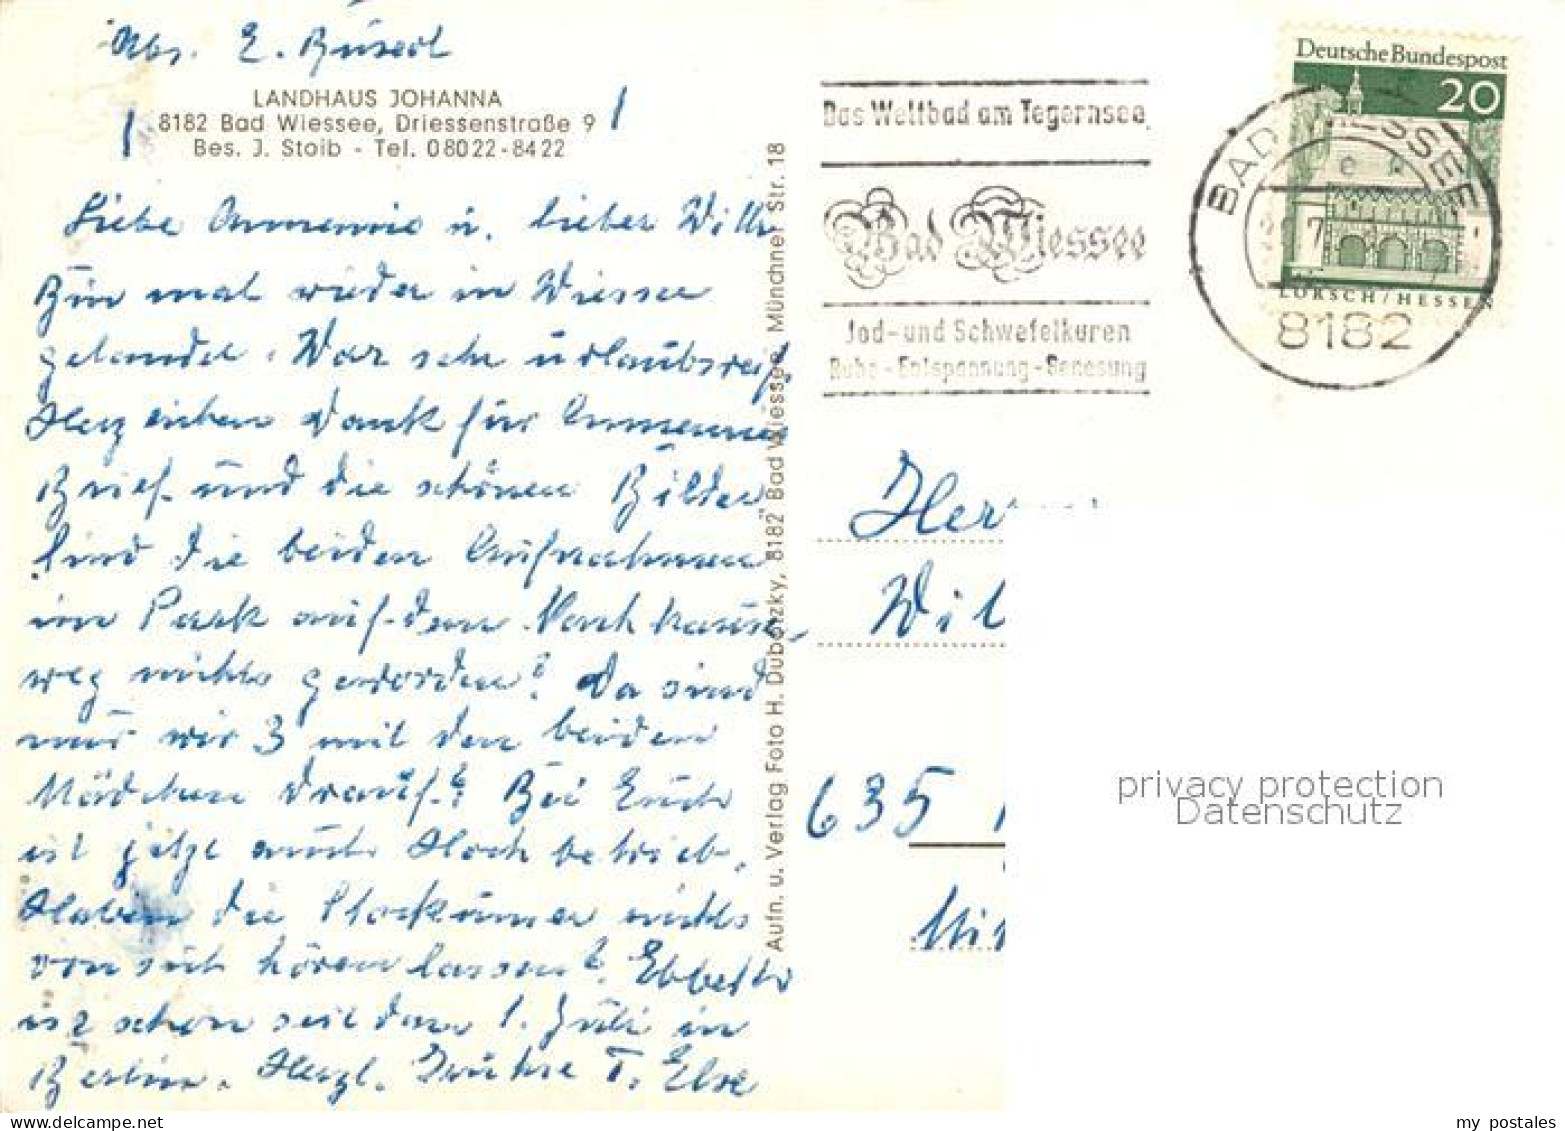 Abs. E.
LANDHAUS JOHANNA
8182 Bad Wiessee, Driessenstraße 9
Bes. J. Stoib - Tel. 08022-8422
Liebe Annemie u. lieber Willi
Bin mal wieder in Wiessee
gelandet. War sehr urlaubsreif.
Herzlichen Dank für Annemies
Brief und die schönen Bilder
Sind die beiden Aufnahmen
im Park auf dem Nachhause-
weg nichts geworden? Da sind
nur wir 3 mit den beiden
Mädchen drauf? Bei Euch
ist jetzt auch Hochbetrieb.
Haben die nichts
von sich hören lassen?
ist schon seit dem 1. Juli in
Berlin. Herzl. Grüße T. Else
Aufn. u. Verlag Foto H. Dubotzky, 8182 Bad Wiessee, Münchner Str. 18
Das Weltbad am Tegernsee
Bad Wiessee
Jod- und Schwefelkuren
Ruhe - Entspannung - Genesung
Deutsche Bundespost
20
LORSCH/HESSEN
BAD WIESSEE
8182
Herr
Wil
635
privacy protection
Datenschutz
my postales